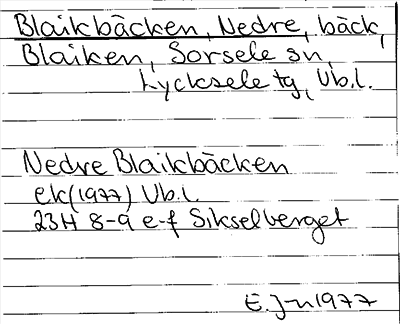 Blaikbäcken, Nedre, bäck,
Blaiken, Sorsele sn,
Lycksele tg, Vb.l.
Nedre Blaikbäcken
ek(1977) Vb.l.
23H 8-9 e-f Sikselberget
E. J-n 1977